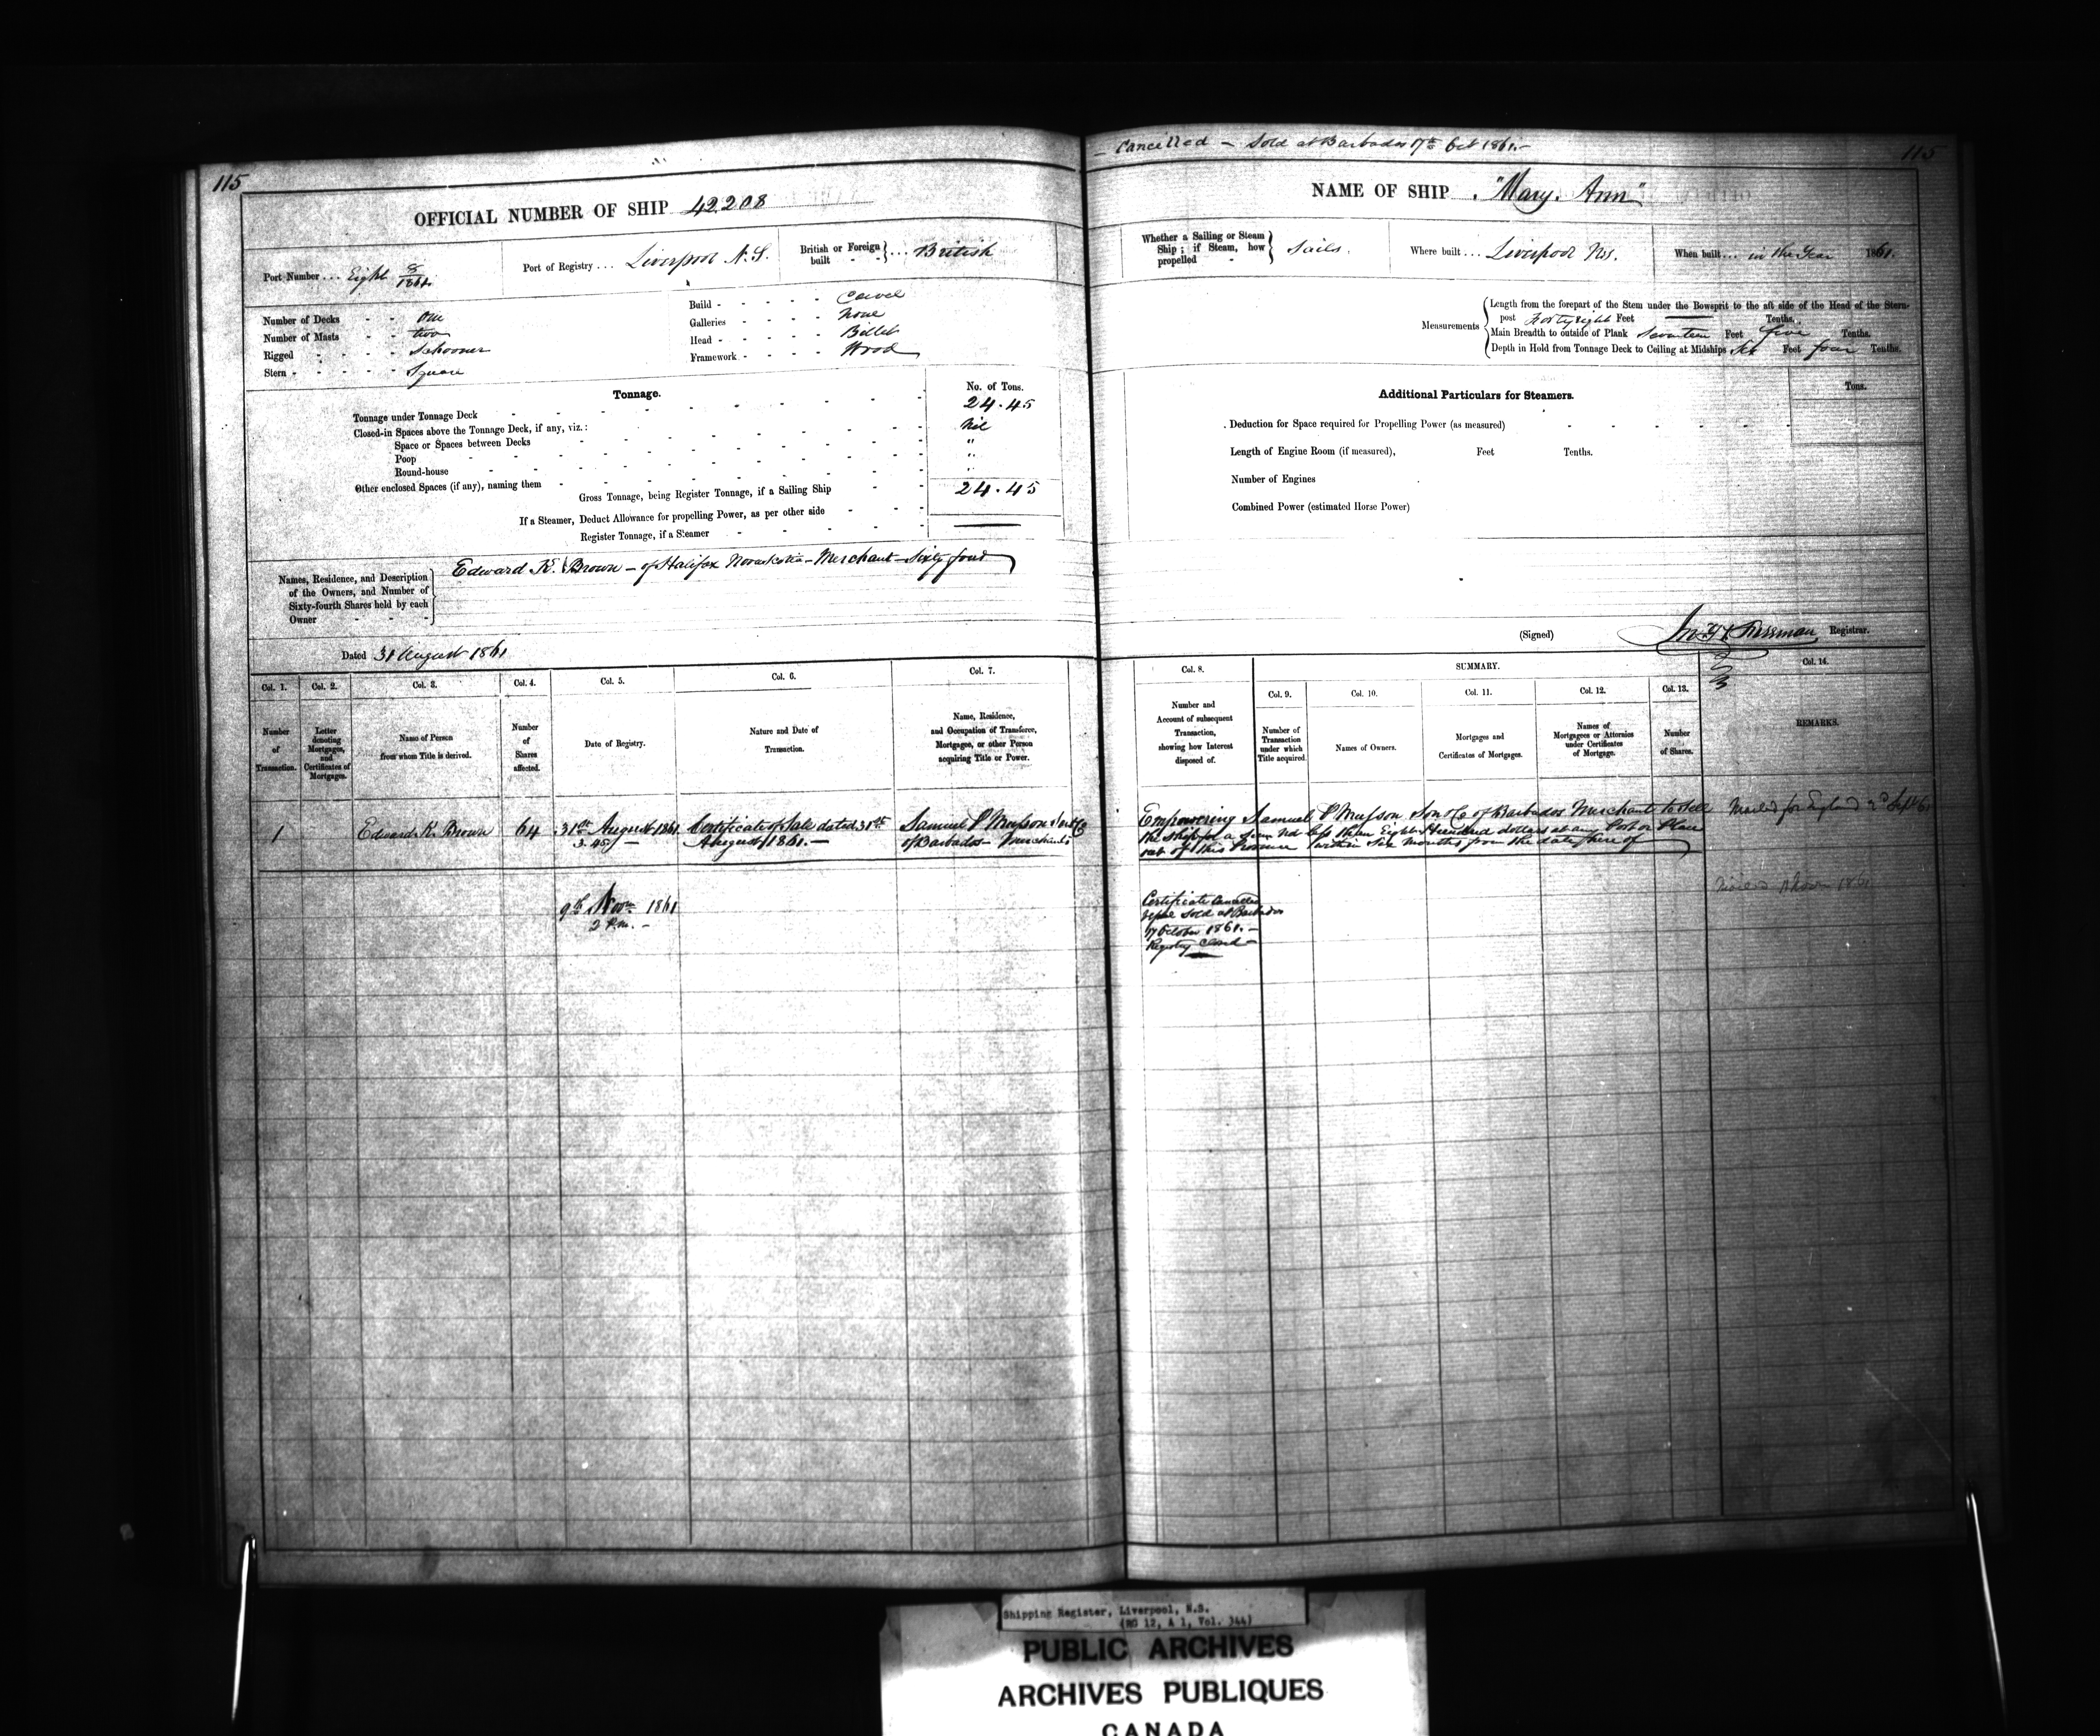 115
OFFICIAL NUMBER OF SHIP 42.208
Port Number ... Eight 8/1861
Port of Registry ... Liverpool N.S.
British or Foreign built - - } ... British
Number of Decks - - One
Number of Masts - - two
Rigged - - - Schooner
Stern - - - - - Square
Build - - - - - Carvel
Galleries - - - - None
Head - - - - - Billet
Framework - - - - Wood
Tonnage.
No. of Tons.
Tonnage under Tonnage Deck 24.45
Closed-in Spaces above the Tonnage Deck, if any, viz.: Nil
Space or Spaces between Decks "
Poop "
Round-house "
Other enclosed Spaces (if any), naming them
Gross Tonnage, being Register Tonnage, if a Sailing Ship 24.45
If a Steamer, Deduct Allowance for propelling Power, as per other side
Register Tonnage, if a Steamer
Names, Residence, and Description
of the Owners, and Number of
Sixty-fourth Shares held by each
Owner
Edward K. Brown - of Halifax Novascotia - Merchant - Sixty four
Dated 31 August 1861
Col. 1.
Number
of
Transaction.
Col. 2.
Letter
denoting
Mortgages,
and
Certificates of
Mortgages.
Col. 3.
Name of Person
from whom Title is derived.
Col. 4.
Number
of
Shares
affected.
Col. 5.
Date of Registry.
Col. 6.
Nature and Date of
Transaction.
Col. 7.
Name, Residence,
and Occupation of Transferee,
Mortgagee, or other Person
acquiring Title or Power.
1
Edward K. Brown
64
31st August 1861
3.45
Certificate of Sale dated 31st
August 1861. -
Samuel P Musson Son & Co
of Barbados - Merchants
9th Novr. 1861
2 P.m. -
- Cancelled - Sold at Barbados 17th Oct 1861. -
115
NAME OF SHIP . "Mary. Ann"
Whether a Sailing or Steam
Ship; if Steam, how
propelled -
Sails.
Where built ... Liverpool Ns.
When built ... in the Year 1861.
Measurements
Length from the forepart of the Stem under the Bowsprit to the aft side of the Head of the Stern-
post Forty eight Feet Tenths.
Main Breadth to outside of Plank Seventeen Feet five Tenths.
Depth in Hold from Tonnage Deck to Ceiling at Midships Six Feet four Tenths.
Additional Particulars for Steamers.
Tons.
Deduction for Space required for Propelling Power (as measured)
Length of Engine Room (if measured), Feet Tenths.
Number of Engines
Combined Power (estimated Horse Power)
(Signed) Registrar.
Col. 8.
Number and
Account of subsequent
Transaction,
showing how Interest
disposed of.
SUMMARY.
Col. 9.
Number of
Transaction
under which
Title acquired
Col. 10.
Names of Owners.
Col. 11.
Mortgages and
Certificates of Mortgages.
Col. 12.
Names of
Mortgagees or Attornies
under Certificates
of Mortgage.
Col. 13.
Number
of Shares.
Col. 14.
REMARKS.
Empowering Samuel P Musson Son & Co of Barbados Merchants to Sell
the Ship for a Sum not less than Eight Hundred dollars at any Port or Place
out of this Province within Six Months from the date here of
Mailed for England 2d Sept 61
Certificate Cancelled
Sold at Barbados
17 October 1861. -
Registry Closed -
Shipping Register, Liverpool, N.S.
(RG 12, A 1, Vol. 344)
PUBLIC ARCHIVES
ARCHIVES PUBLIQUES
CANADA